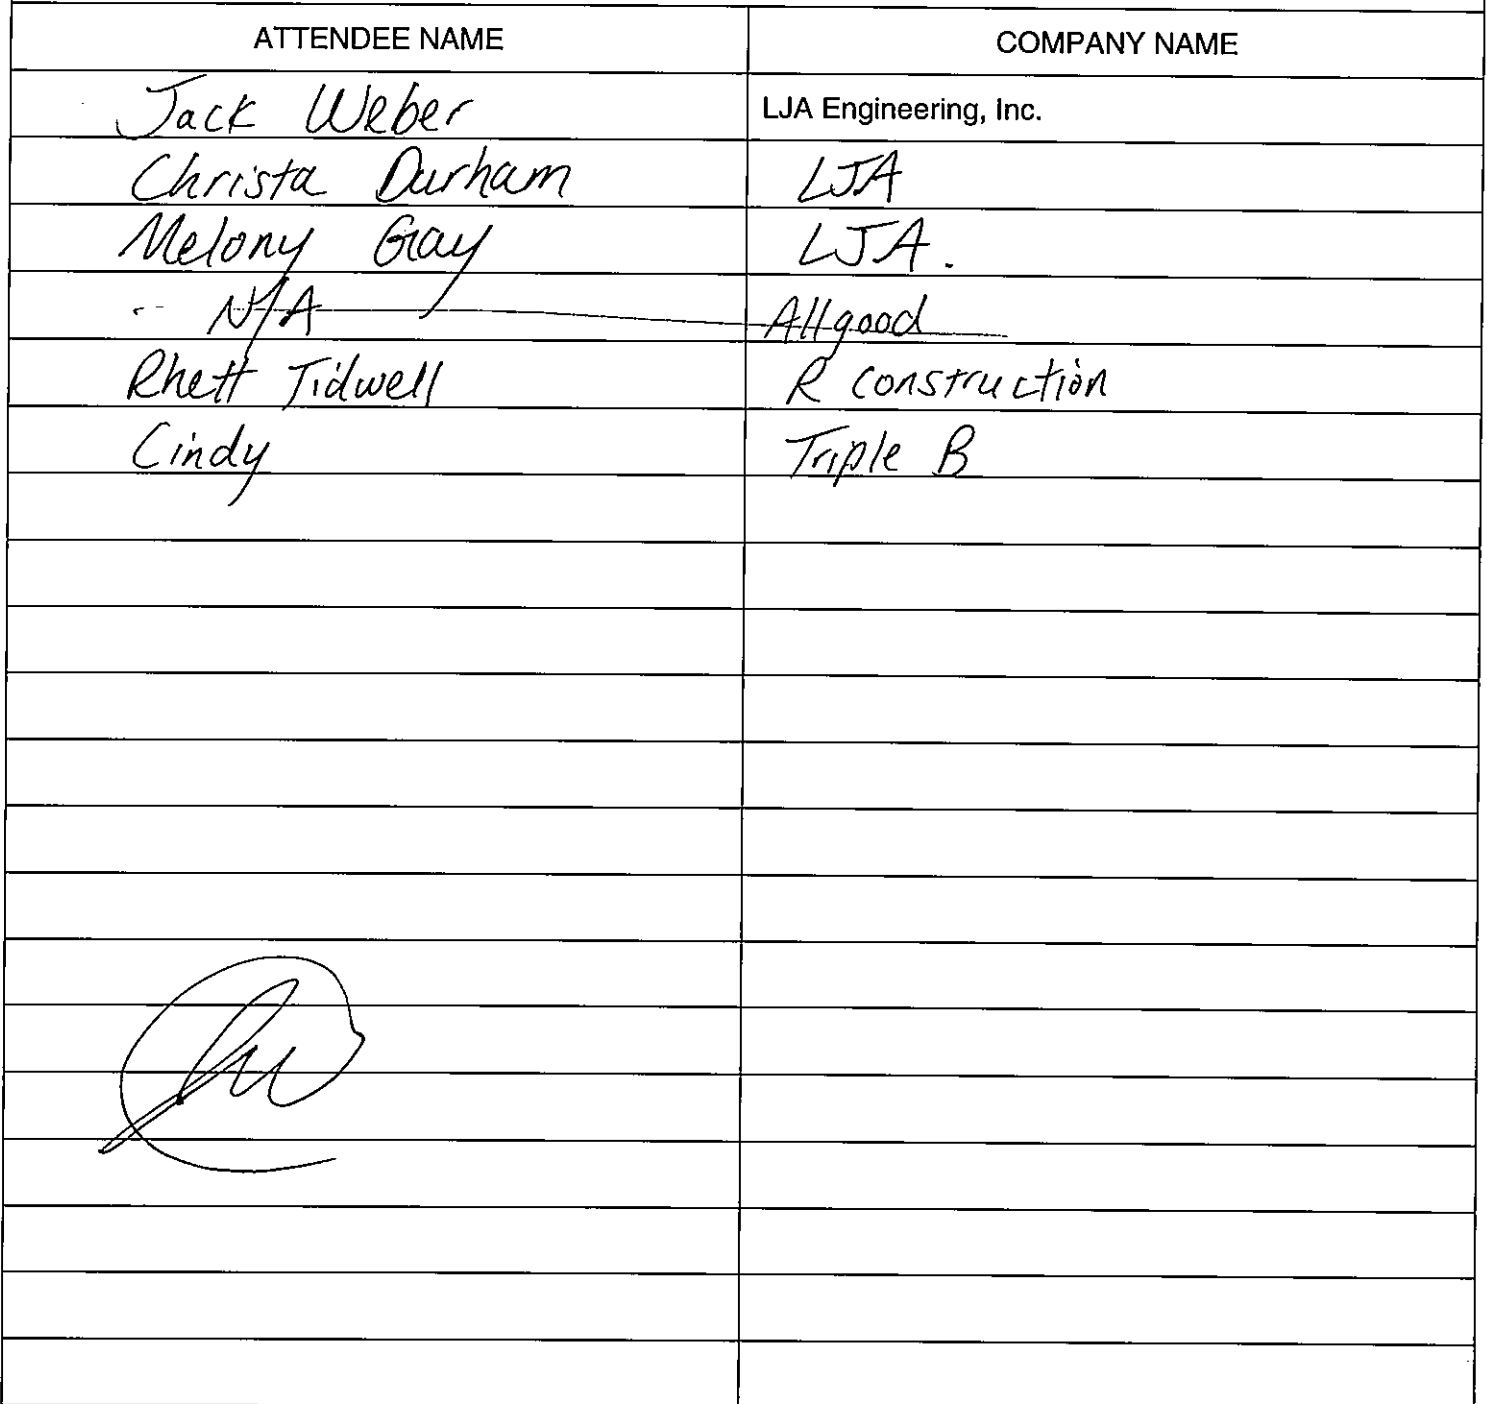 ATTENDEE NAME COMPANY NAME
Jack Weber LJA Engineering, Inc.
Christa Durham LJA
Melony Gray LJA.
N/A Allgood
Rhett Tidwell R construction
Cindy Triple B